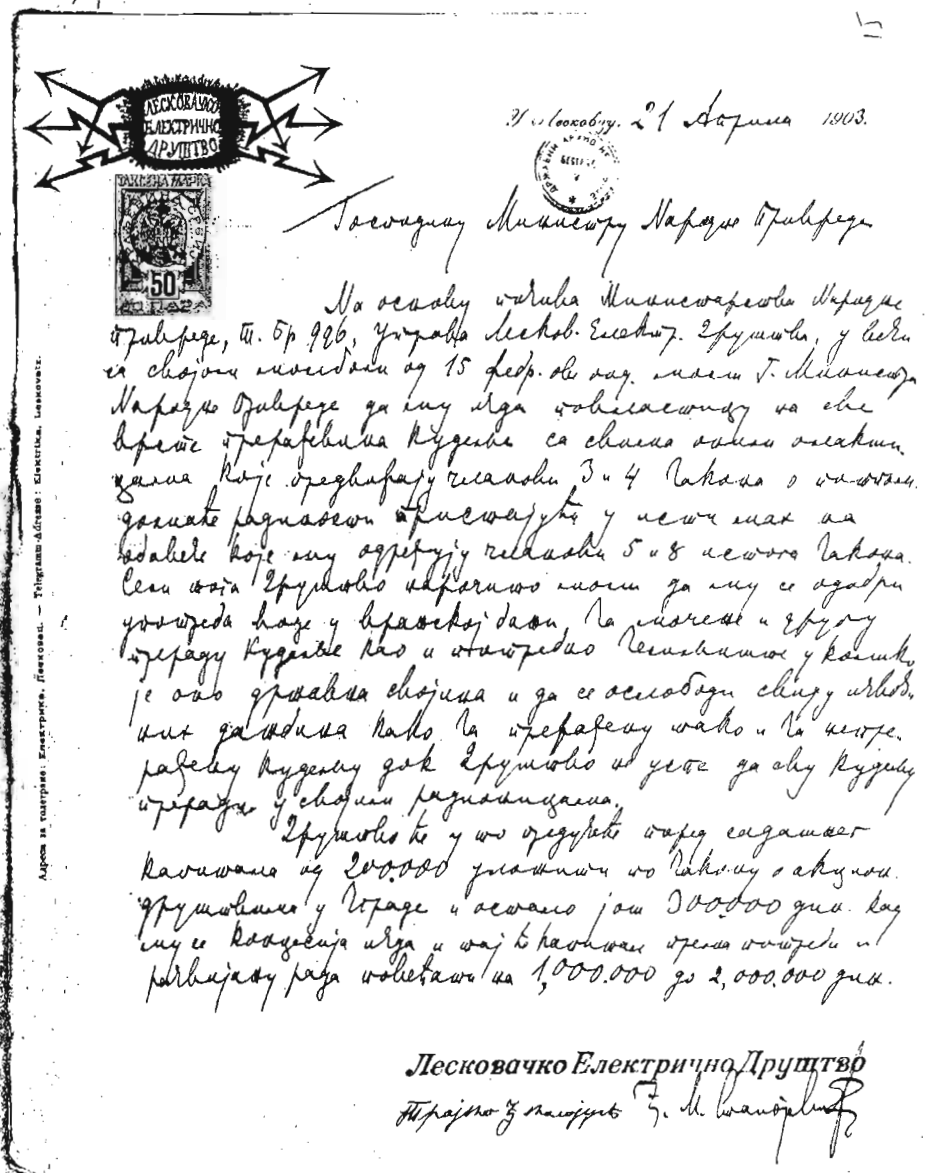 ЛЕСКОВАЧКО
ЕЛЕКТРИЧНО
ДРУШТВО
ТАКСЕНА МАРКА
50
50 ПАРА
У Лесковцу, 21 Априла 1903.
Господину Министру Народне Привреде
На основу позива Министарства Народне
Привреде, Т. Бр 996, Управа Лесков. Електр. Друштва, у вези
са својом молбом од 15 фебр. ове год. моли Г. Министра
Народне Привреде да му изда повластицу на све
врсте прерађевина кудеље са свима оним олакши-
цама које предвиђају чланови 3 и 4 Закона о
домаће радиности пристајући у исти мах на
обавезе које му одређују чланови 5 и 8 истога Закона.
Сем тога Друштво нарочито моли да му се одобри
употреба воде у врањској бањи, за мочење и другу
прераду кудеље као и потребно земљиште у колико
је оно државна својина и да се ослободи свију извоз-
них дажбина како за прерађену тако и за непре-
рађену кудељу док Друштво не успе да сву кудељу
преради у својим радионицама.
Друштво ће у то предузеће поред садашњег
капитала од 200.000 уложити по Закону о акцион.
друштвима у зграде и остало још 300.000 дин. кад
му се концесија изда и тај ће капитал према потреби и
развијању рада повећати на 1,000.000 до 2,000.000 дин.
Лесковачко Електрично Друштво
Адреса за телеграме: Електрика, Лесковац. — Telegramm-Adresse: Elektrika, Leskovetz.